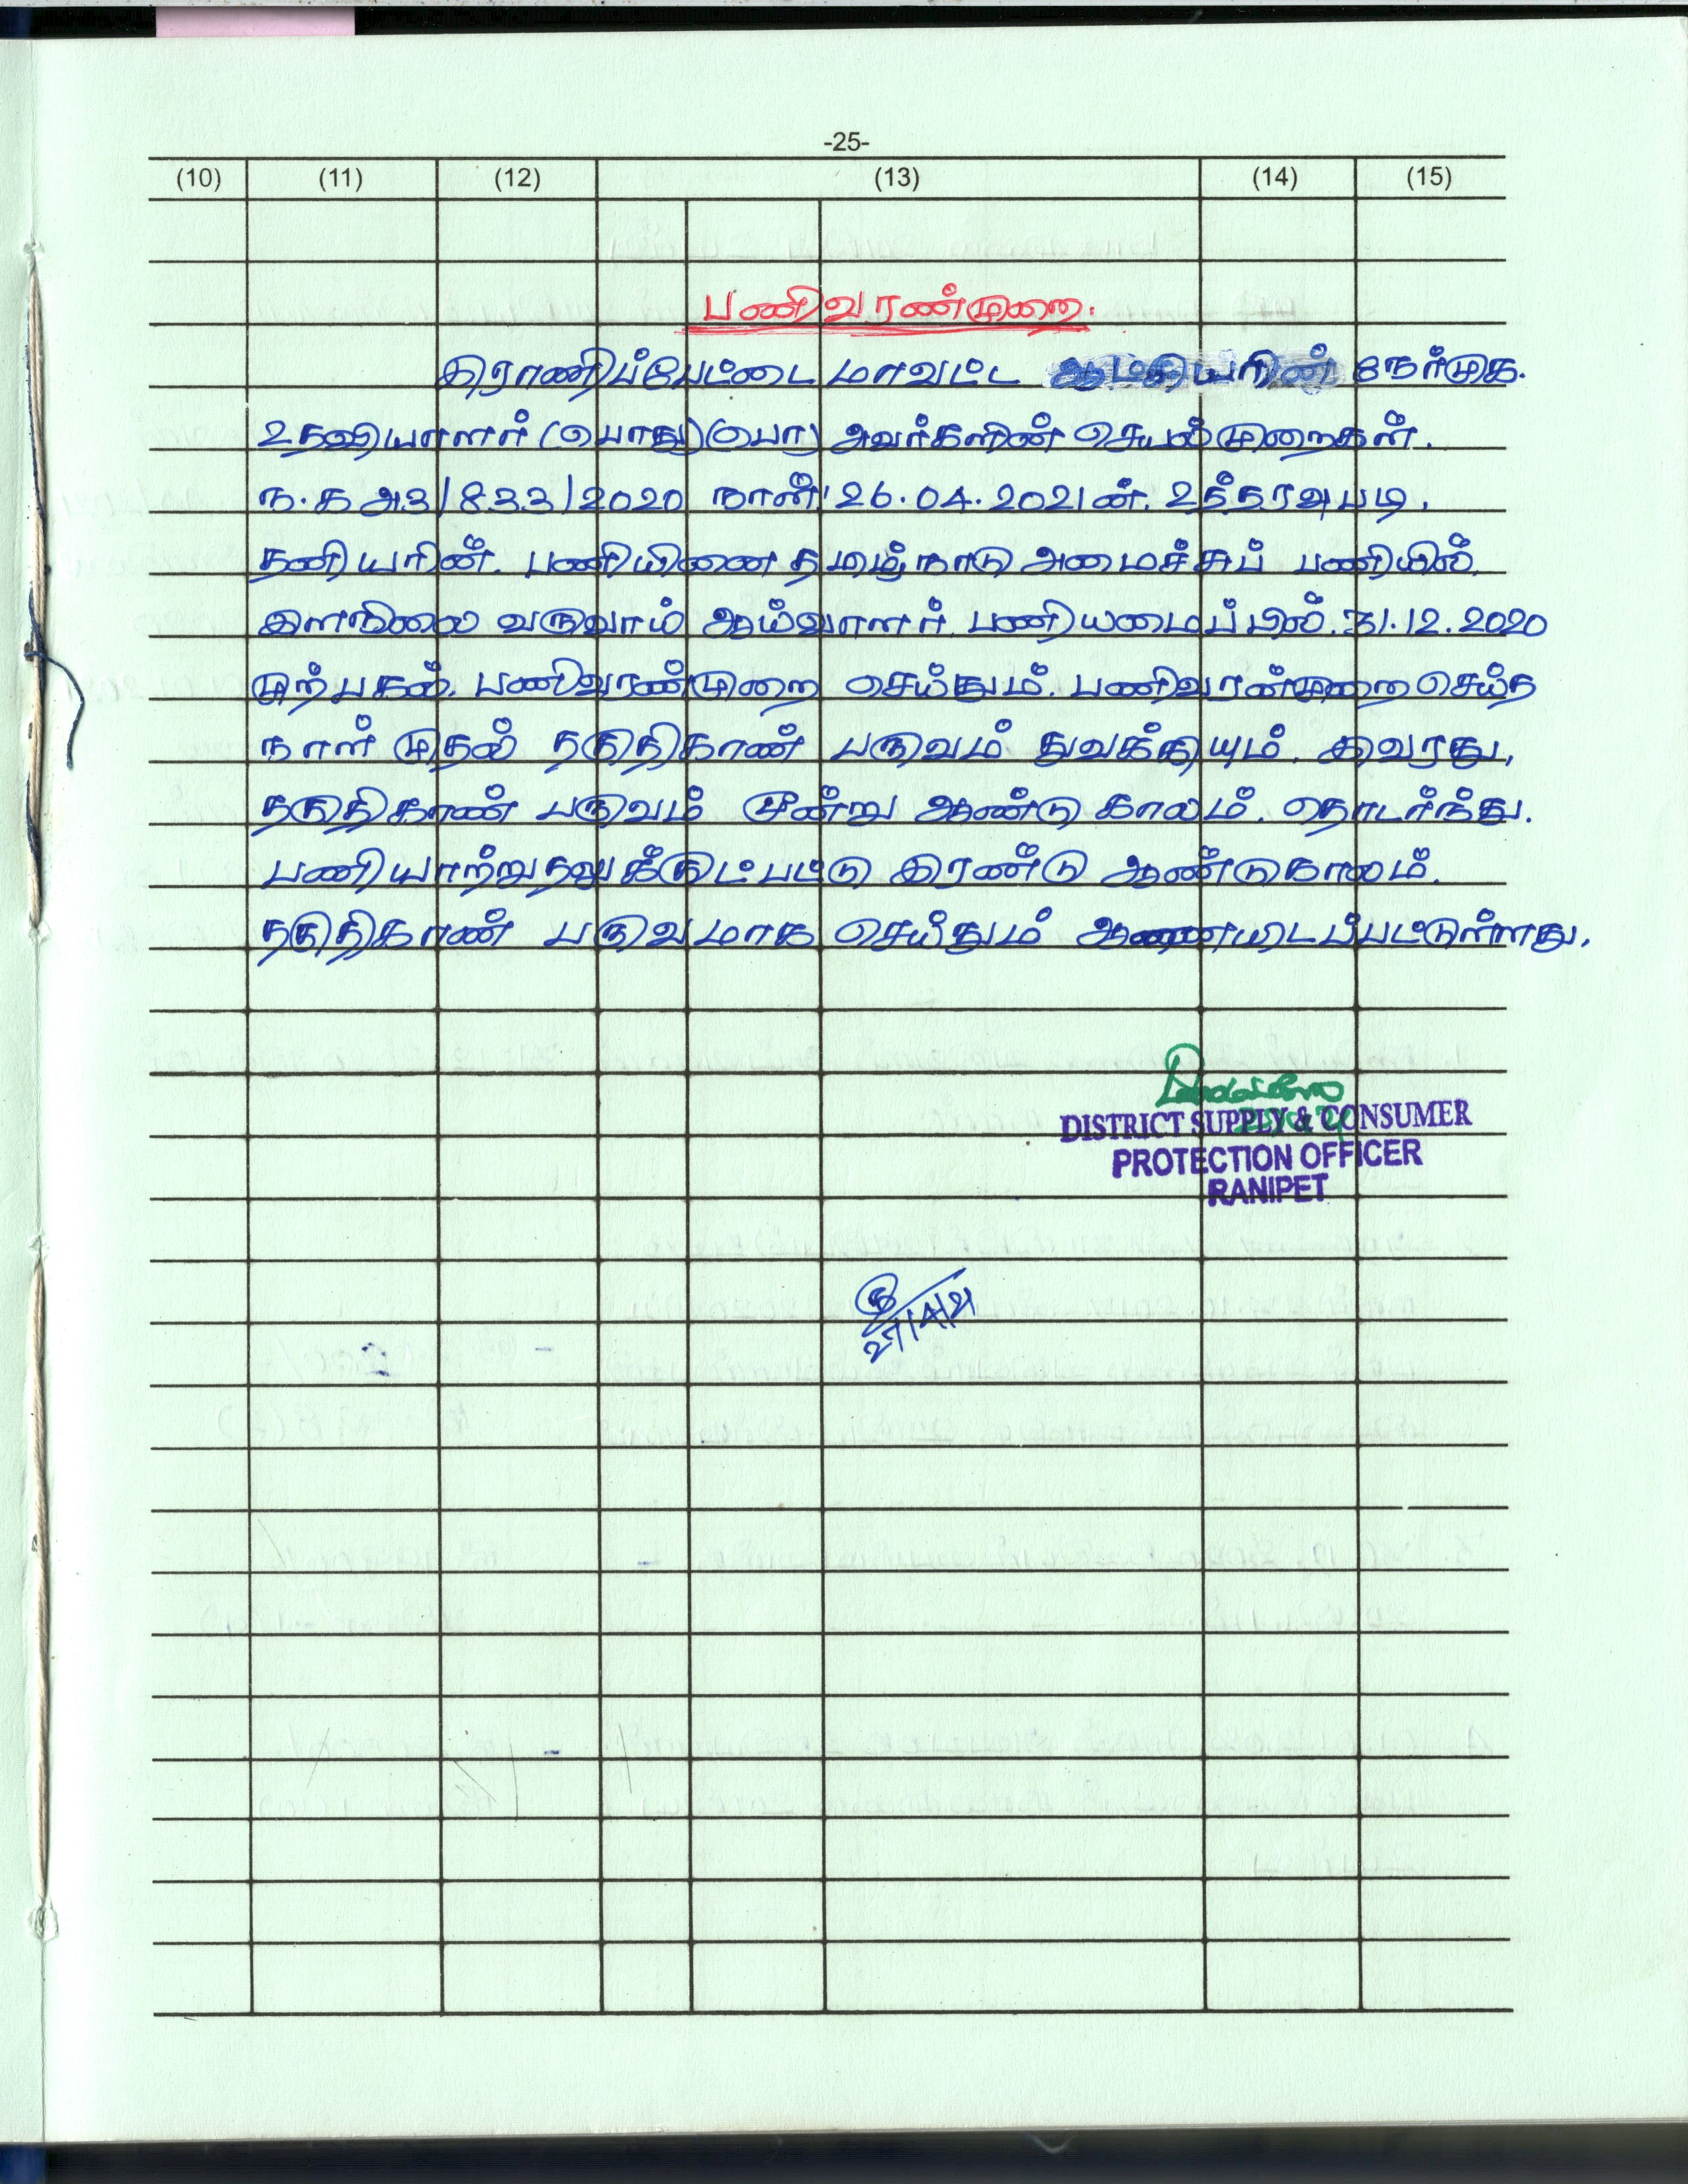 -25-
(10) (11) (12) (13) (14) (15)
பணிவரண்முறை.
இராணிப்பேட்டை மாவட்ட ஆட்சியரின் நேர்முக.
உதவியாளர் (பொது)(பொ) அவர்களின் செயல்முறைகள்.
ந.க அ3/833/2020 நாள்: 26.04.2021ன். உத்தரவுபடி.
தனியரின். பணியினை தமிழ்நாடு அமைச்சுப் பணியில்.
இளநிலை வருவாய் ஆய்வாளர். பணியமைப்பில். 31.12.2020
முற்பகல். பணிவரண்முறை செய்தும். பணிவரன்முறை செய்த
நாள் முதல் தகுதிகாண் பருவம் துவக்கியும். இவரது,
தகுதிகாண் பருவம் மூன்று ஆண்டு காலம். தொடர்ந்து.
பணியாற்றுதலுக்குட்பட்டு இரண்டு ஆண்டுகாலம்.
தகுதிகாண் பருவமாக செய்தும் ஆணையிடப்பட்டுள்ளது.
DISTRICT SUPPLY & CONSUMER
PROTECTION OFFICER
RANIPET
27/4/21